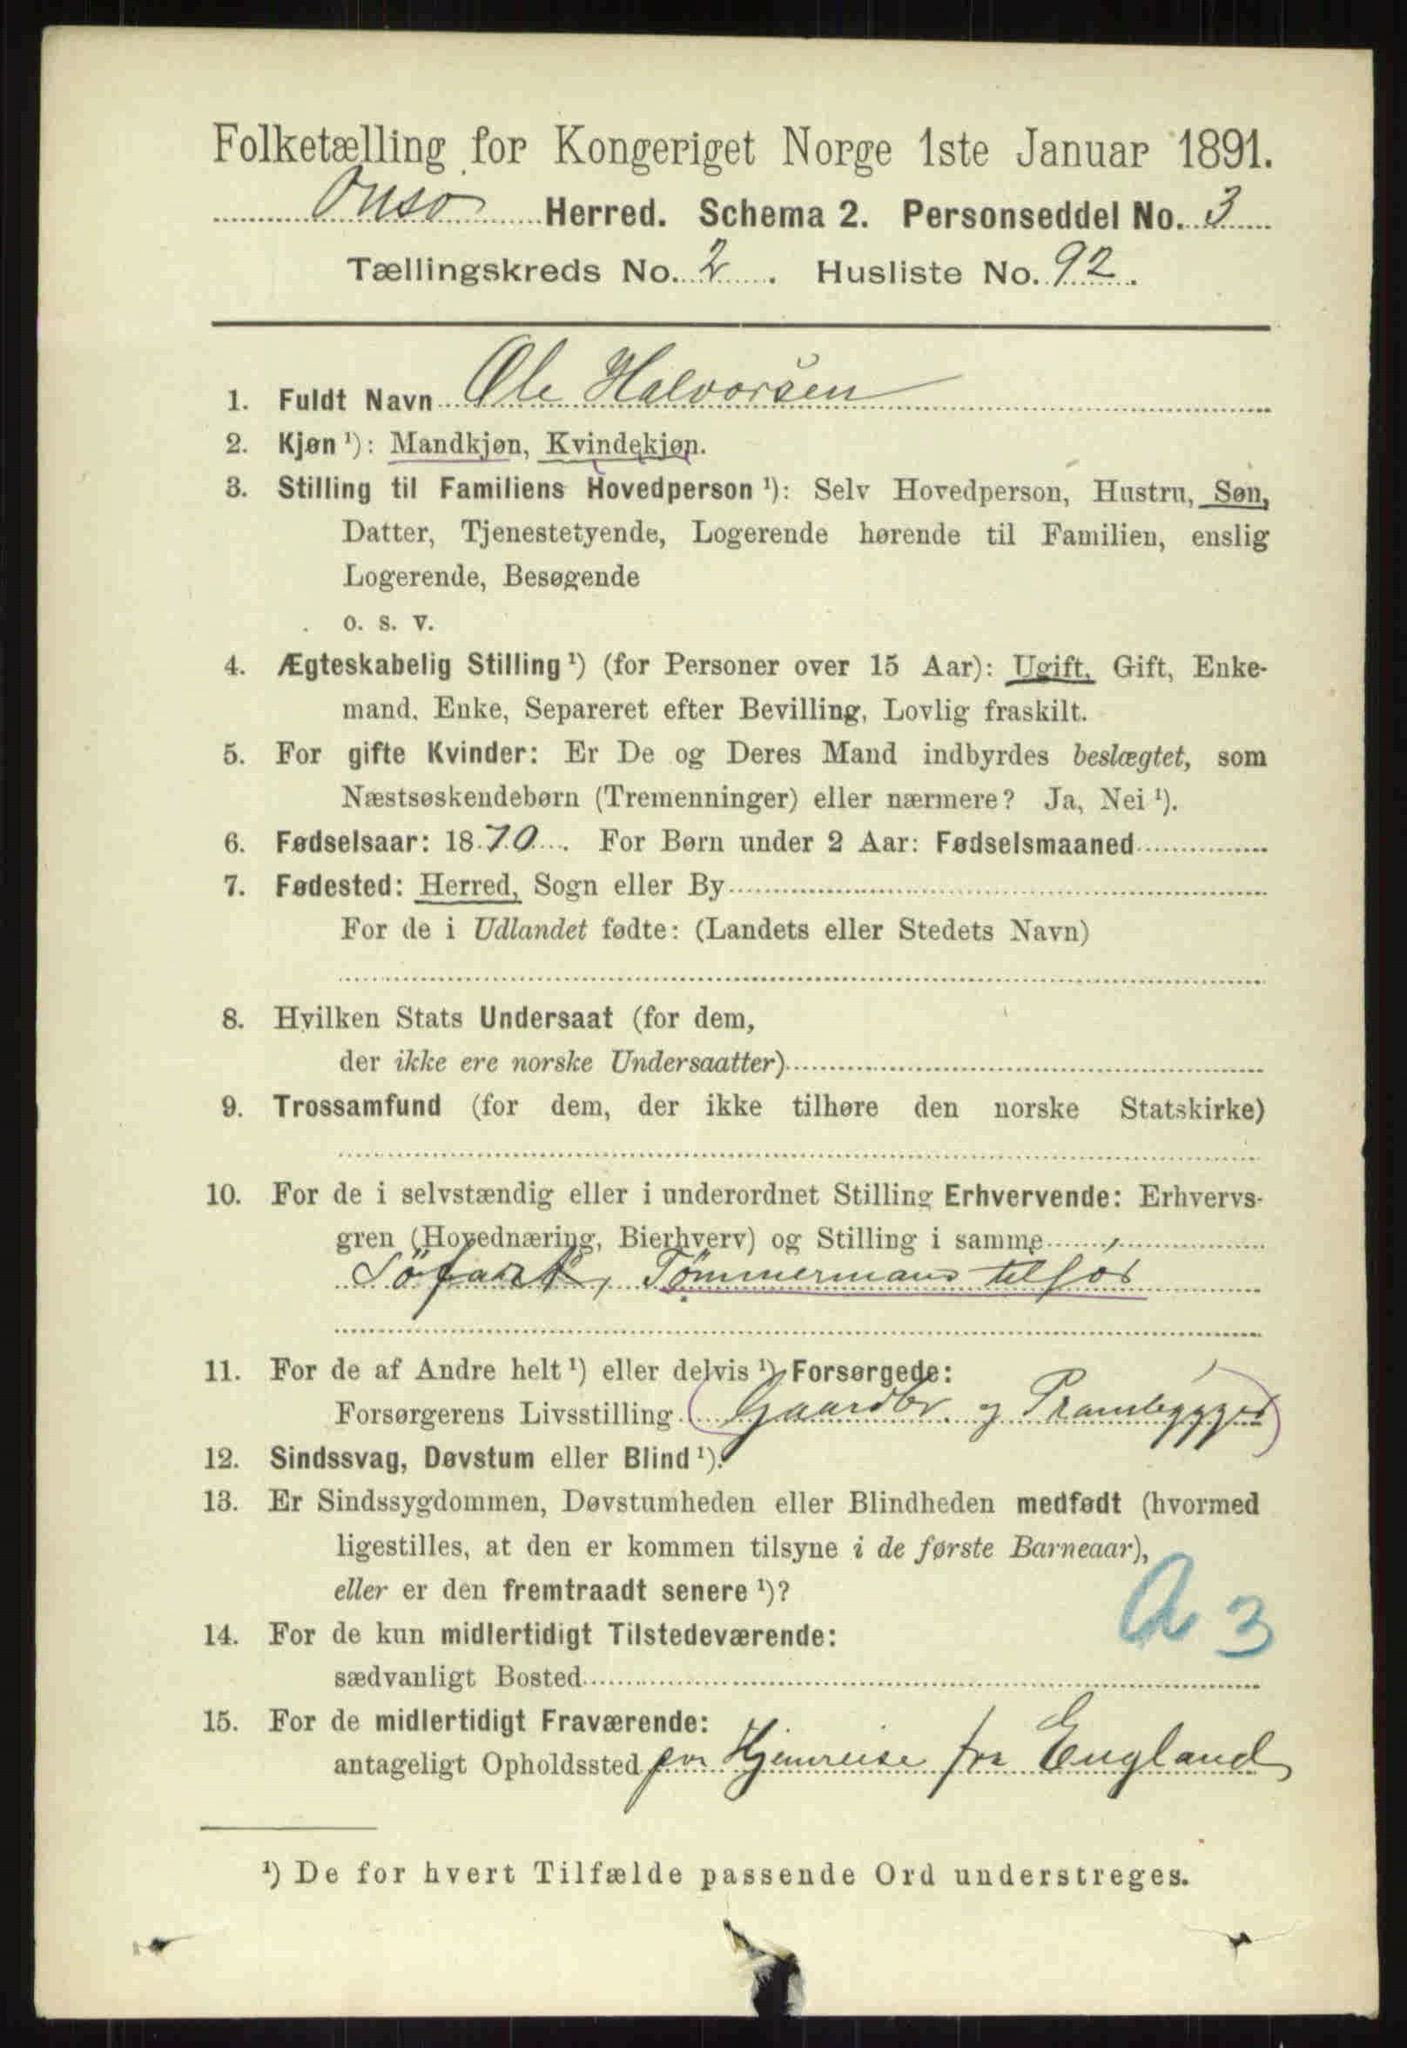 Folketælling for Kongeriget Norge 1ste Januar 1891.
Onsø Herred. Schema 2. Personseddel No. 3
Tællingskreds No. 2. Husliste No. 92.
1. Fuldt Navn Ole Halvorsen
2. Kjøn ¹): Mandkjøn, Kvindekjøn.
3. Stilling til Familiens Hovedperson ¹): Selv Hovedperson, Hustru, Søn,
Datter, Tjenestetyende, Logerende hørende til Familien, enslig
Logerende, Besøgende
o. s. v.
4. Ægteskabelig Stilling ¹) (for Personer over 15 Aar): Ugift, Gift, Enke-
mand, Enke, Separeret efter Bevilling, Lovlig fraskilt.
5. For gifte Kvinder: Er De og Deres Mand indbyrdes beslægtet, som
Næstsøskendebørn (Tremenninger) eller nærmere? Ja, Nei ¹).
6. Fødselsaar: 1870. For Børn under 2 Aar: Fødselsmaaned
7. Fødested: Herred, Sogn eller By
For de i Udlandet fødte: (Landets eller Stedets Navn)
8. Hvilken Stats Undersaat (for dem,
der ikke ere norske Undersaatter)
9. Trossamfund (for dem, der ikke tilhøre den norske Statskirke)
10. For de i selvstændig eller i underordnet Stilling Erhvervende: Erhvervs-
gren (Hovednæring, Bierhverv) og Stilling i samme
Söfart, Tømmermand tilsös
11. For de af Andre helt ¹) eller delvis ¹) Forsørgede:
Forsørgerens Livsstilling (Gaardbr. og Prambygger)
12. Sindssvag, Døvstum eller Blind ¹).
13. Er Sindssygdommen, Døvstumheden eller Blindheden medfødt (hvormed
ligestilles, at den er kommen tilsyne i de første Barneaar),
eller er den fremtraadt senere ¹)?
A 3
14. For de kun midlertidigt Tilstedeværende:
sædvanligt Bosted
15. For de midlertidigt Fraværende:
antageligt Opholdssted paa Hjemreise fra England
¹) De for hvert Tilfælde passende Ord understreges.